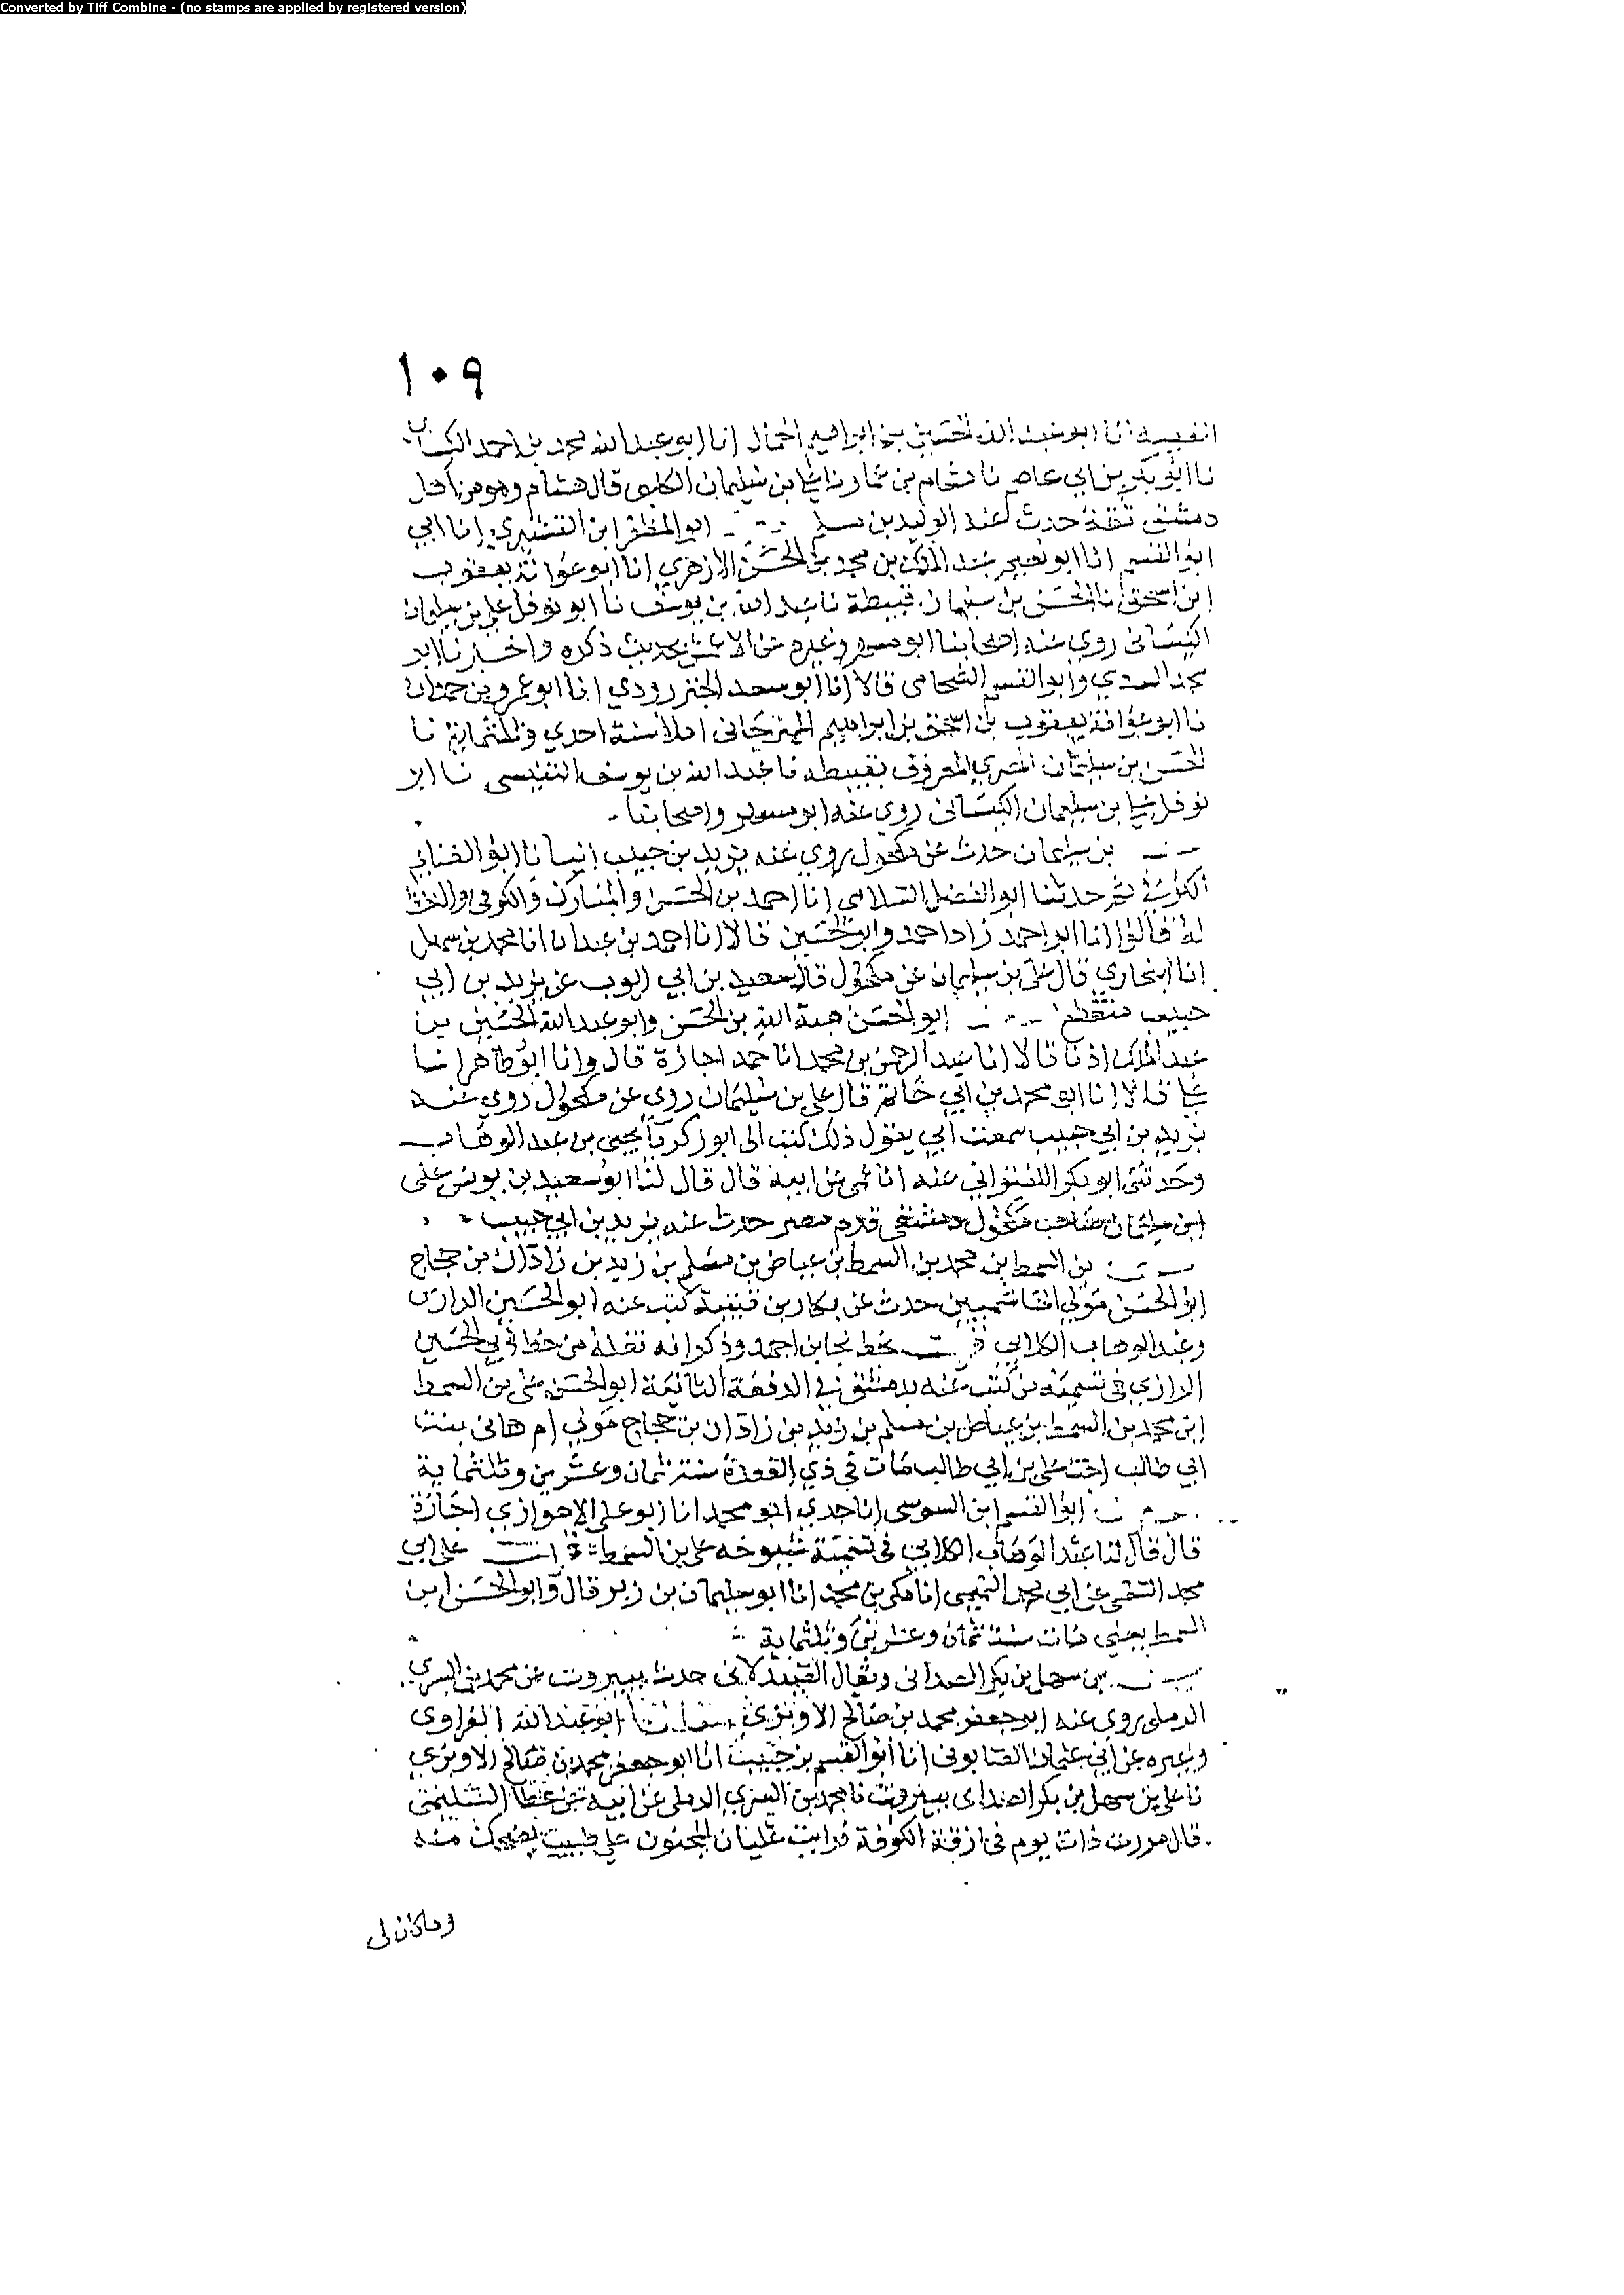 Converted by Tiff Combine - (no stamps are applied by registered version)
١٠٩
انا ابو عبد الله الحسين بن ابراهيم الجمال انا ابو عبد الله محمد بن احمد
نا ابو بكر بن ابي عاصم نا هشام بن عمار نا علي بن سليمان الكلبي قال هشام وهو من اهل
دمشق ثقة حدث عند الوليد بن مسلم ابو المظفر ابن القشيري انا ابي
ابو القسم انا ابو نعيم عبد الملك بن محمد بن الحسن الازهري انا ابو عوانة يعقوب
ابن اسحق نا الحسن بن سليمان قبيطة نا عبد الله بن يوسف نا ابو نوفل علي بن سليمان
الكيساني روى عنه اصحابنا ابو مسهر وغيره عن الاعمش بحديث ذكره واخبرنا ابو
محمد السدي وابو القسم الشحامي قالا انا ابو سعد الجنزرودي انا ابو عمرو بن حمدان
نا ابو عوانة يعقوب بن اسحق بن ابراهيم المهرجاني املا سنة احدى وثلثماية نا
الحسن بن سليمان المصري المعروف بقبيطه نا عبد الله بن يوسف التنيسي نا ابو
نوفل علي بن سليمان الكيساني روى عنه ابو مسهر واصحابنا
بن سليمان حدث عن مكحول روى عنه يزيد بن حبيب انبانا ابو الغنايم
الكوفي ثم حدثنا ابو الفضل السلامي انا احمد بن الحسن والمبارك والكوفي واللفظ
له قالوا انا ابو احمد زاد احمد وابو الحسين قالا انا احمد بن عبدان انا محمد بن سهل
انا البخاري قال علي بن سليمان عن مكحول قاله سعيد بن ابي ايوب عن يزيد بن ابي
حبيب منقطع ابو الحسن هبة الله بن الحسن وابو عبد الله الحسين بن
عبد الملك اذنا قالا انا عبد الرحمن بن محمد انا حمد اجازة قال وانا ابو طاهر انا
علي قالا انا ابو محمد بن ابي حاتم قال علي بن سليمان روى عن مكحول روى عنه
يزيد بن ابي حبيب سمعت ابي يقول ذلك كتب الى ابو زكريا يحيى بن عبد الوهاب
وحدثني ابو بكر اللفتواني عنه انا عمي عن ابيه قال قال لنا ابو سعيد بن يونس علي
ابن سليمان صاحب مكحول دمشقي قدم مصر حدث عنه يزيد بن ابي حبيب
بن السمط بن محمد بن السمط بن عياض بن مسلم بن زيد بن زاذان بن حجاج
ابو الحسن مولى الهاشميين حدث عن بكار بن قتيبة كتب عنه ابو الحسين الرازي
وعبد الوهاب الكلابي بخط نجا بن احمد وذكر انه نقله من خط ابي الحسين
الرازي في تسمية من كتب عنه بدمشق في الدفعة الثانية ابو الحسن علي بن السمط
ابن محمد بن السمط بن عياض بن مسلم بن زيد بن زاذان بن حجاج مولى ام هاني بنت
ابي طالب اخت علي بن ابي طالب مات في ذي القعدة سنة ثمان وعشرين وثلثماية
ابو القسم ابن السوسي انا جدي ابو محمد انا ابو علي الاهوازي اجازة
قال قال لنا عبد الوهاب الكلابي في تسمية شيوخه علي بن السمط علي ابي
محمد السلمي عن ابي محمد التميمي انا مكي بن محمد انا ابو سليمان بن زبر قال وابو الحسن ابن
السمط يعني مات سنة ثمان وعشرين وثلثماية
بن سهل بن بكر الصيداني ويقال حدث ببيروت عن محمد بن السري
الرملي روى عنه ابو جعفر محمد بن صالح الاوبري ابو عبد الله الفراوي
وغيره عن ابي عثمان الصابوني انا ابو القسم بن حبيب انا ابو جعفر محمد بن صالح الاوبري
نا علي بن سهل بن بكر الصيداني ببيروت نا محمد بن السري الرملي عن ابيه عن عطا السليمي
قال مررت ذات يوم في ازقة الكوفة فرايت عليان المجنون على طبيب يضحك منه
وما كان لي